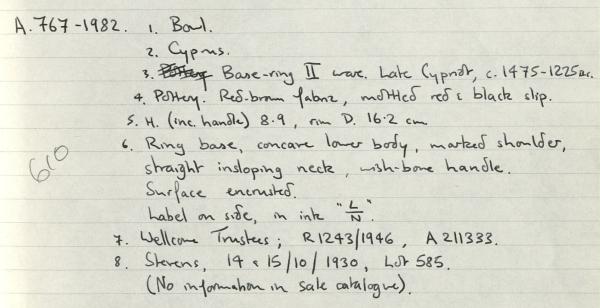 A.767-1982. 1. Bowl.
2. Cyprus.
3. Pottery Base-ring II ware. Late Cypriot, c. 1475-1225 BC.
4. Pottery. Red-brown fabric, mottled red & black slip.
5. H. (inc. handle) 8.9, rim D. 16.2 cm
6. Ring base, concave lower body, marked shoulder,
straight insloping neck, wish-bone handle.
Surface encrusted.
Label on side, in ink "L/N".
7. Wellcome Trustees; R1243/1946, A211333.
8. Stevens, 14 & 15/10/1930, Lot 585.
(No information in sale catalogue).
610